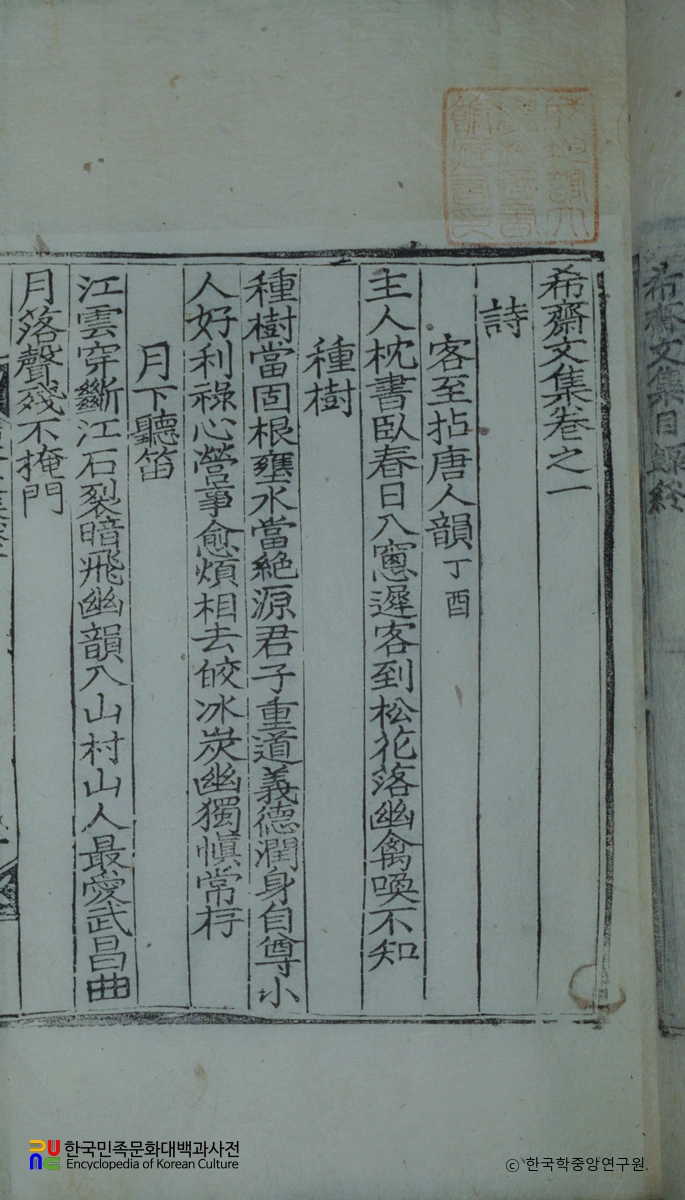 希齋文集卷之一
詩
客至拈唐人韻 丁酉
主人枕書臥春日入窻遲客到松花落幽禽喚不知
種樹
種樹當固根壅水當絶源君子重道義德潤身自尊小
人好利祿心營事愈煩相去皎冰炭幽獨愼常存
月下聽笛
江雲穿斷江石裂暗飛幽韻入山村山人最愛武昌曲
月落聲殘不掩門
希齋文集目錄終
한국민족문화대백과사전
Encyclopedia of Korean Culture
ⓒ 한국학중앙연구원.